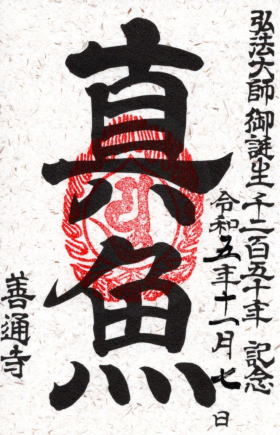 弘法大師御誕生千二百五十年 記念
令和五年十一月七日
真魚
善通寺